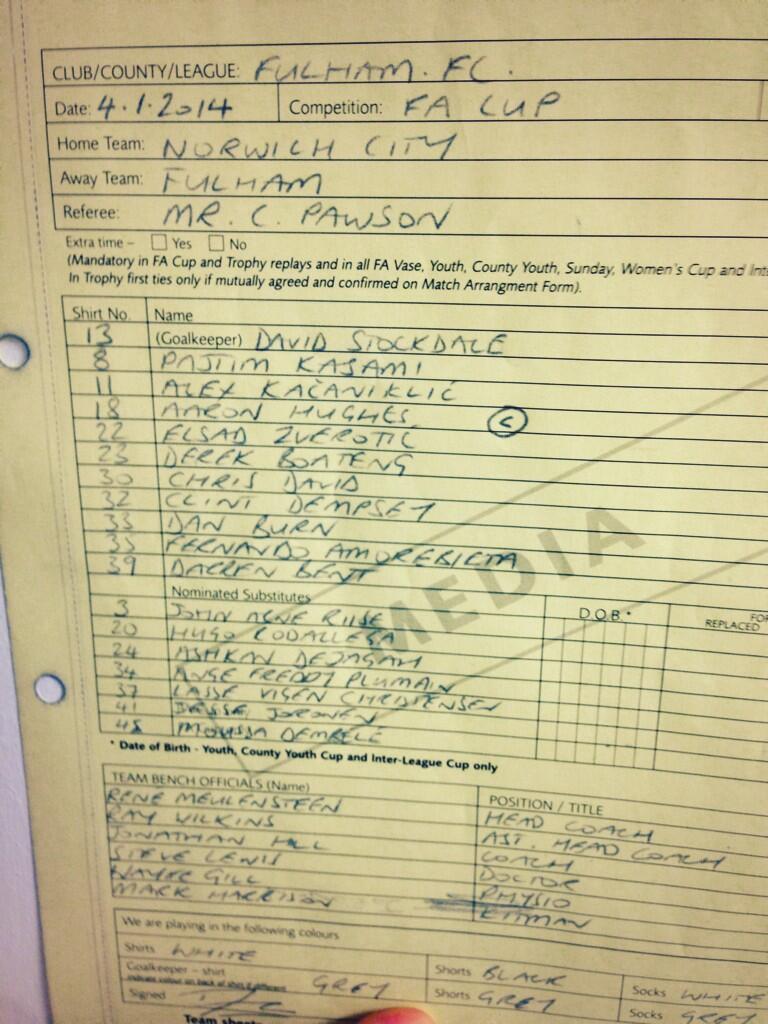 CLUB/COUNTY/LEAGUE: FULHAM. FC.
Date: 4.1.2014 Competition: FA CUP
Home Team: NORWICH CITY
Away Team: FULHAM
Referee: MR. C. PAWSON
Extra time – Yes No
(Mandatory in FA Cup and Trophy replays and in all FA Vase, Youth, County Youth, Sunday, Women's Cup and
In Trophy first ties only if mutually agreed and confirmed on Match Arrangment Form).
Shirt No. Name
13 (Goalkeeper) DAVID STOCKDALE
8 PAJTIM KASAMI
11 ALEX KAČANIKLIĆ
18 AARON HUGHES C
22 ELSAD ZVEROTIC
23 DEREK BOATENG
30 CHRIS DAVID
32 CLINT DEMPSEY
33 DAN BURN
35 FERNANDO AMOREBIETA
39 DARREN BENT
MEDIA
Nominated Substitutes D.O.B.* REPLACED
3 JOHN ARNE RIISE
20 HUGO RODALLEGA
24 ASHKAN DEJAGAH
34 ANGE FREDDY PLUMAIN
37 LASSE VIGEN CHRISTENSEN
41 JESSE JORONEN
45 MOUSSA DEMBELE
* Date of Birth - Youth, County Youth Cup and Inter-League Cup only
TEAM BENCH OFFICIALS (Name) POSITION / TITLE
RENE MEULENSTEEN HEAD COACH
RAY WILKINS AST. HEAD COACH
JONATHAN HILL COACH
STEVE LEWIS DOCTOR
WAYNE GILL PHYSIO
MARK HARRISON KITMAN
We are playing in the following colours
Shirts WHITE Shorts BLACK Socks WHITE
Goalkeeper – shirt GREY Shorts GREY Socks GREY
indicate colour on back of shirt if different
Signed
Team